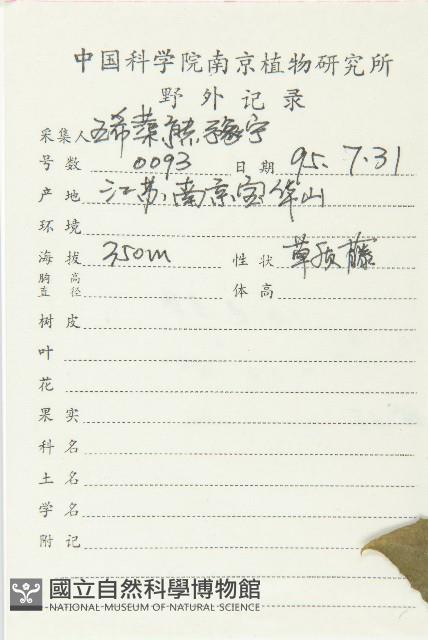 中国科学院南京植物研究所
野外记录
采集人 王希蕖 熊豫宁
号数 0093 日期 95.7.31
产地 江苏.南京.宝华山
环境
海拔 350m 性状 草质藤
胸高直径 体高
树皮
叶
花
果实
科名
土名
学名
附记
國立自然科學博物館
NATIONAL MUSEUM OF NATURAL SCIENCE